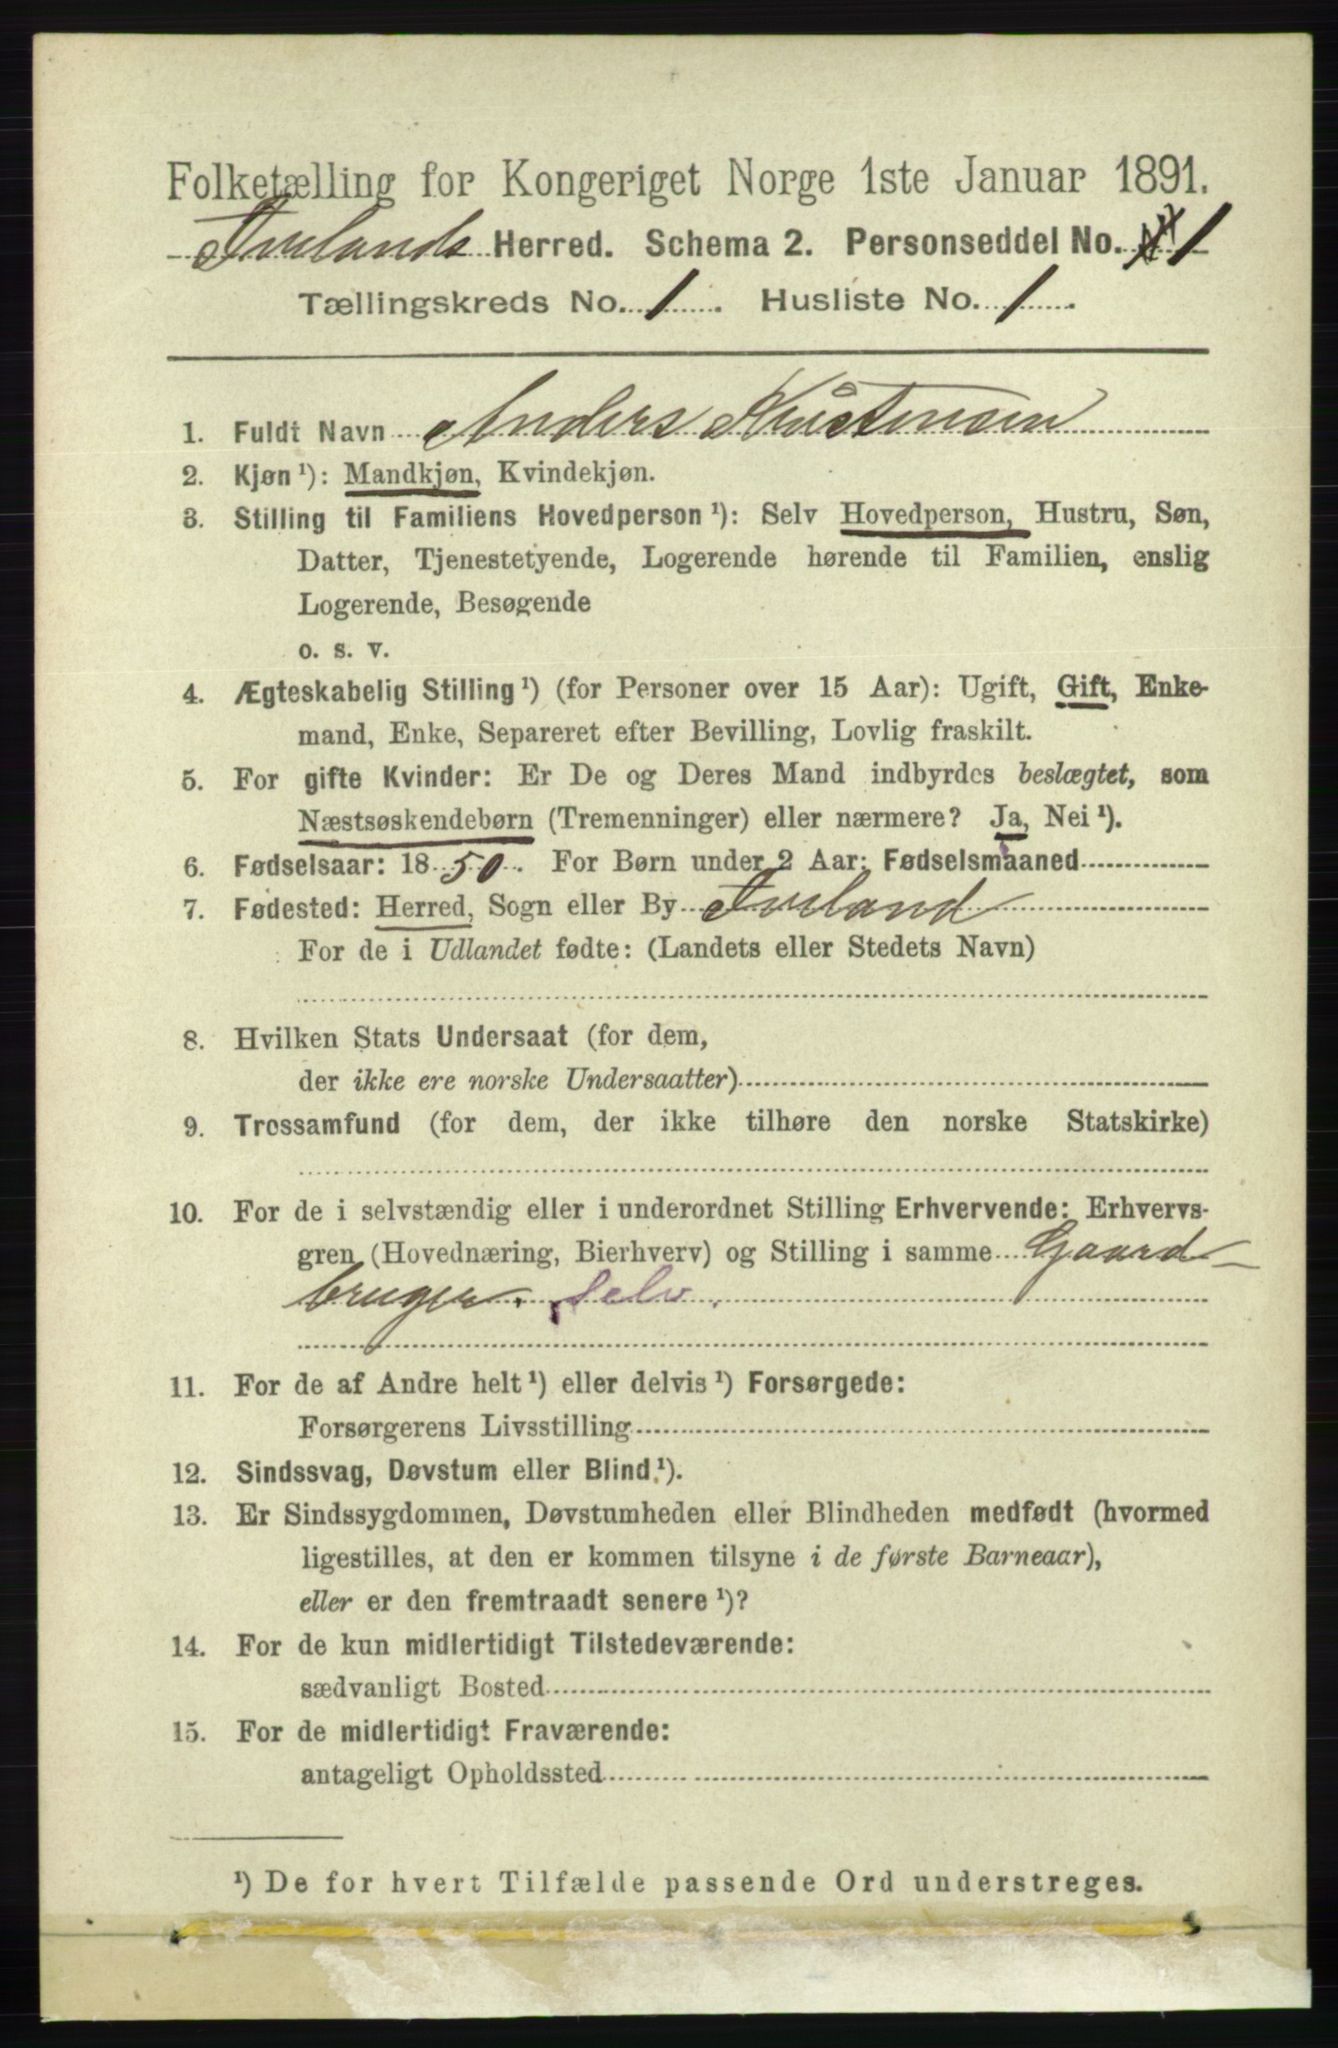 Folketælling for Kongeriget Norge 1ste Januar 1891.
Ivelands Herred. Schema 2. Personseddel No. 1
Tællingskreds No. 1. Husliste No. 1.
1. Fuldt Navn Anders Kristensen
2. Kjøn¹): Mandkjøn, Kvindekjøn.
3. Stilling til Familiens Hovedperson¹): Selv Hovedperson, Hustru, Søn,
Datter, Tjenestetyende, Logerende hørende til Familien, enslig
Logerende, Besøgende
o. s. v.
4. Ægteskabelig Stilling¹) (for Personer over 15 Aar): Ugift, Gift, Enke-
mand, Enke, Separeret efter Bevilling, Lovlig fraskilt.
5. For gifte Kvinder: Er De og Deres Mand indbyrdes beslægtet, som
Næstsøskendebørn (Tremenninger) eller nærmere? Ja, Nei¹).
6. Fødselsaar: 1850. For Børn under 2 Aar: Fødselsmaaned
7. Fødested: Herred, Sogn eller By Iveland
For de i Udlandet fødte: (Landets eller Stedets Navn)
8. Hvilken Stats Undersaat (for dem,
der ikke ere norske Undersaatter)
9. Trossamfund (for dem, der ikke tilhøre den norske Statskirke)
10. For de i selvstændig eller i underordnet Stilling Erhvervende: Erhvervs-
gren (Hovednæring, Bierhverv) og Stilling i samme Gaard-
bruger. Selv.
11. For de af Andre helt¹) eller delvis¹) Forsørgede:
Forsørgerens Livsstilling
12. Sindssvag, Døvstum eller Blind.¹).
13. Er Sindssygdommen, Døvstumheden eller Blindheden medfødt (hvormed
ligestilles, at den er kommen tilsyne i de første Barneaar),
eller er den fremtraadt senere¹)?
14. For de kun midlertidigt Tilstedeværende:
sædvanligt Bosted
15. For de midlertidigt Fraværende:
antageligt Opholdssted
¹) De for hvert Tilfælde passende Ord understreges.